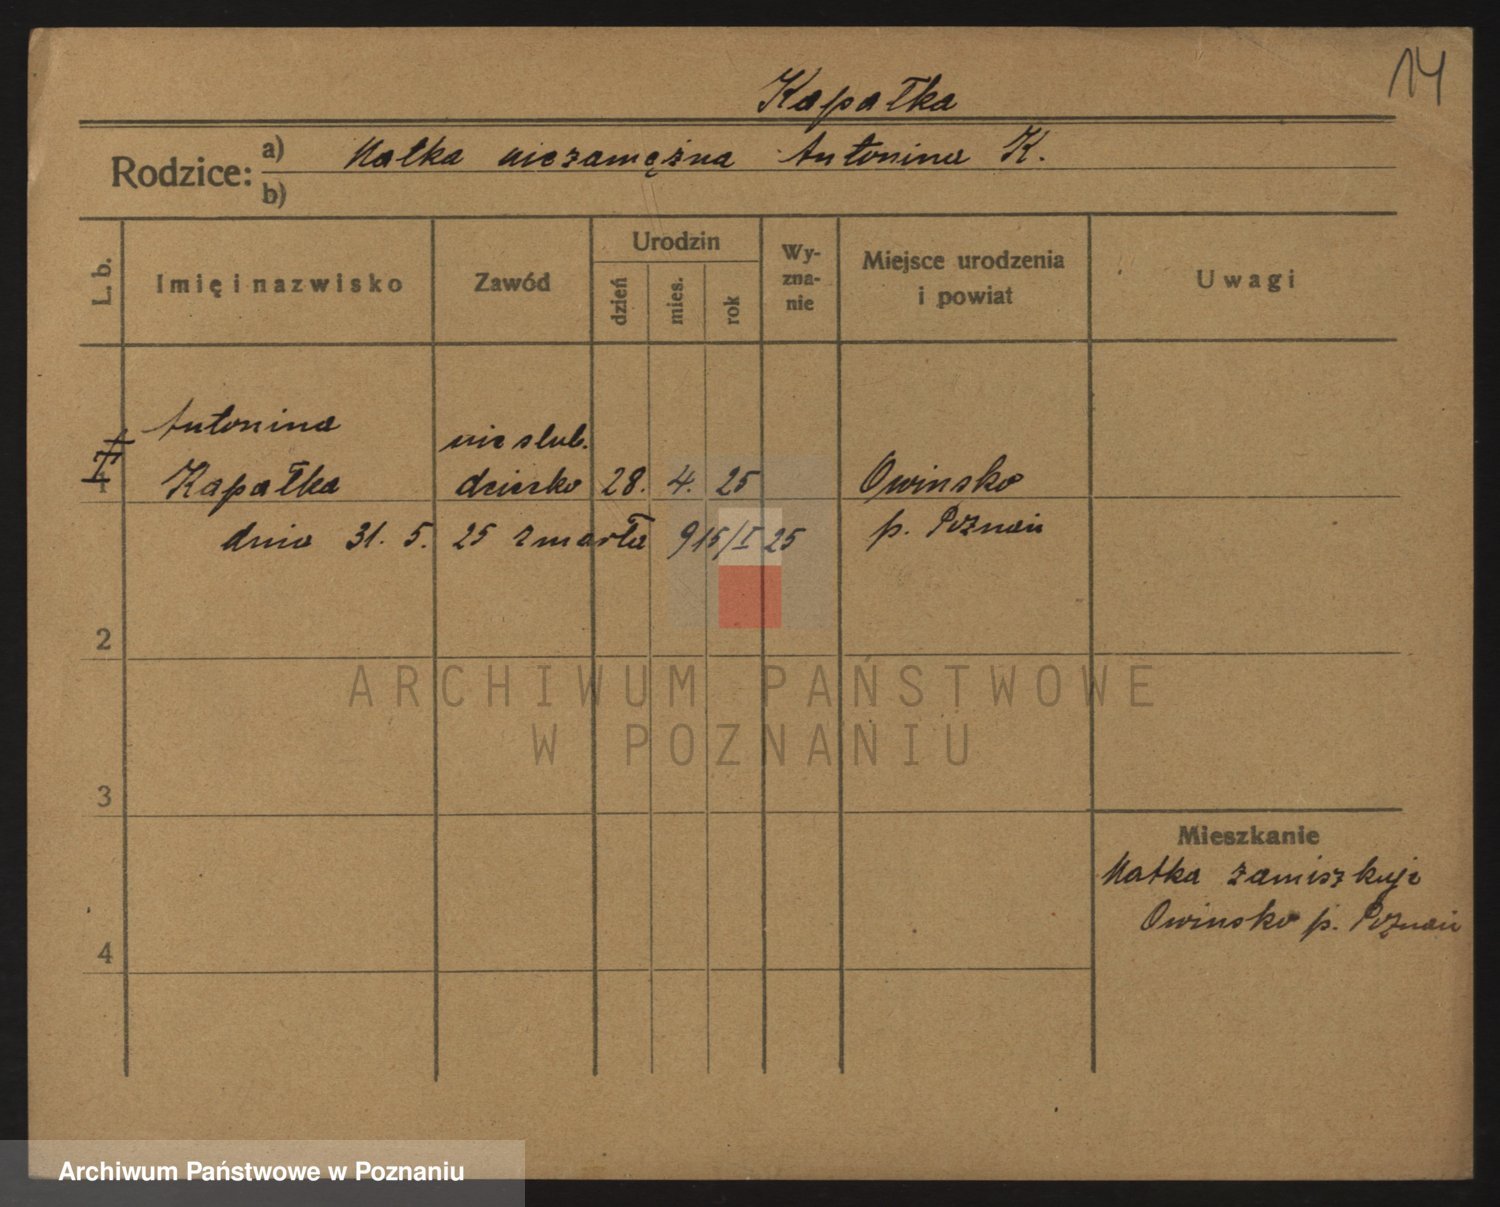 14
Kapałka
Rodzice: a) Matka niezamężna Antonina K.
b)
L. b.
Imię i nazwisko
Zawód
Urodzin
dzień
mies.
rok
Wy-
zna-
nie
Miejsce urodzenia
i powiat
Uwagi
Antonina
nieslub.
1 Kapałka dziecko 28. 4. 25 Owinsko
dnia 31. 5. 25 zmarła 915/I 25 p. Poznań
2
ARCHIWUM PAŃSTWOWE
W POZNANIU
3
Mieszkanie
Matka zamiszkuje
Owinsko p. Poznań
4
Archiwum Państwowe w Poznaniu